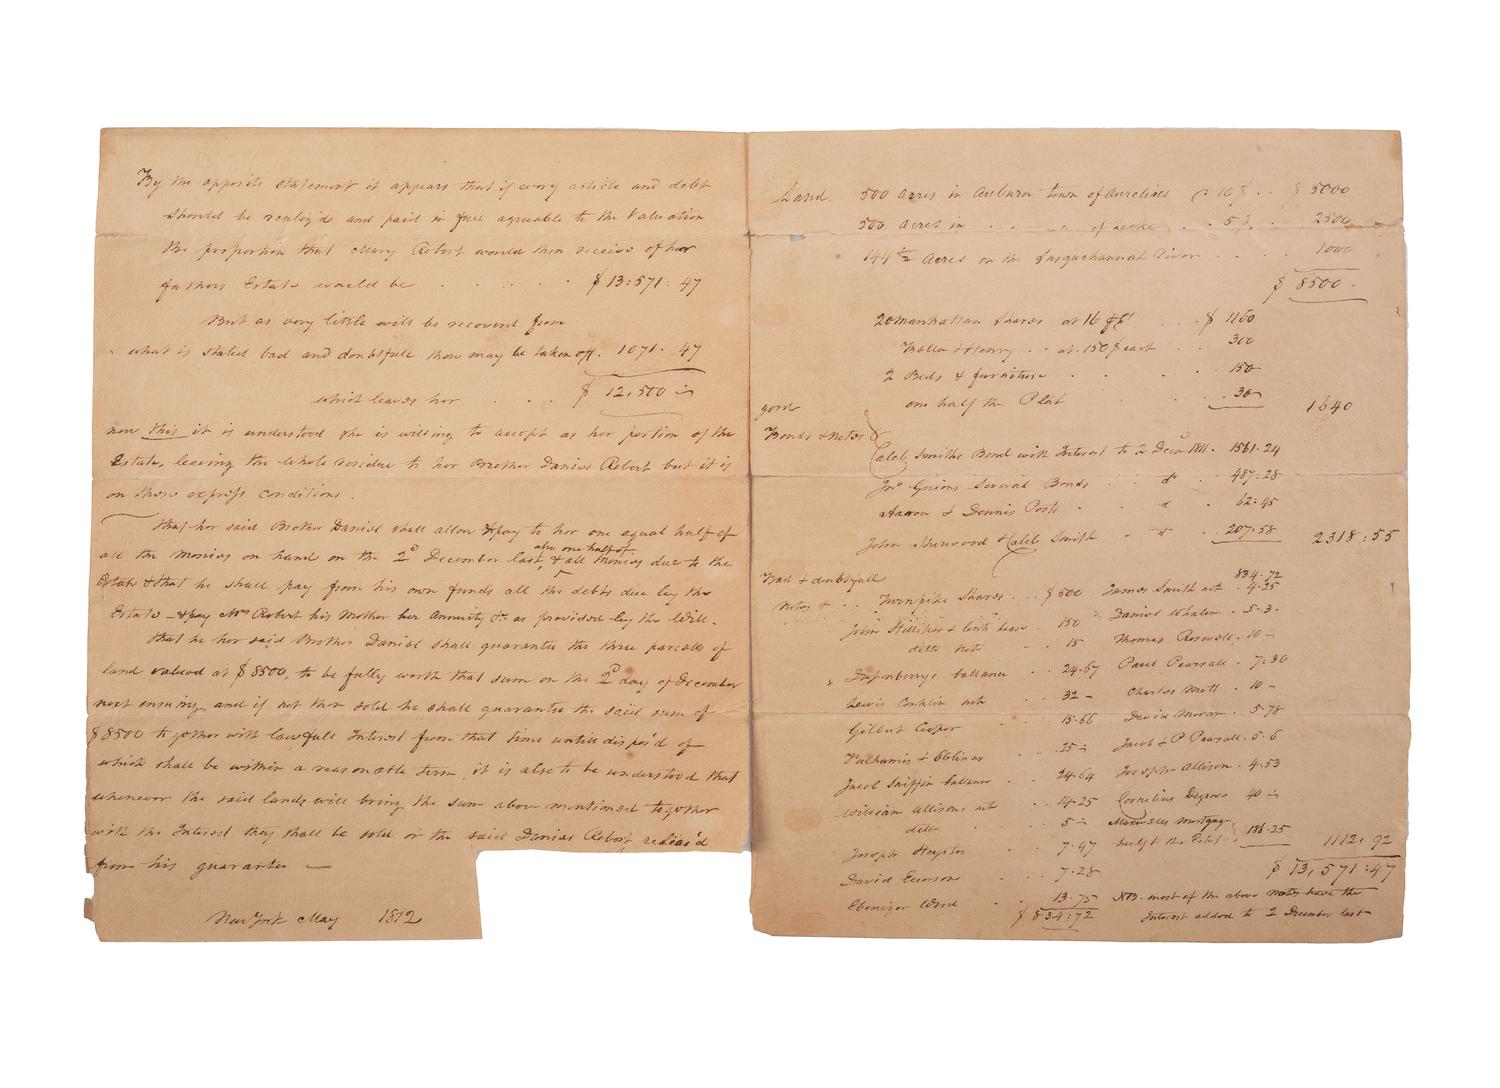 By the opposite statement it appears that if every article and debt
should be realiz'd and paid in full agreeable to the Valuation
the proportion that Mary Robert would then receive of her
fathers Estate would be . . . . . $ 13:571:47
But as very little will be recovered from
what is stated bad and doubtfull there may be taken off. 1071. 47
which leaves her . . . . $ 12,500 –
now this it is understood she is willing to accept as her portion of the
Estate, leaving the whole residue to her Brother Daniel Robert but it is
on these express conditions.
that her said Brother Daniel shall allow & pay to her one equal half of
all the monies on hand on the 2d December last, also one half of & all Monies due to the
Estate & that he shall pay from his own funds all the debts due by the
Estate – & pay Mrs Robert his Mother her Annuity &c as provided by the Will.
that he her said Brother Daniel shall guarantee the three parcels of
land valued at $ 8500, to be fully worth that sum on the 2d day of December
next ensuing, and if not then sold he shall guarantee the said sum of
$ 8500 together with lawfull Interest from that time untill dispos'd of
which shall be within a reasonable term, it is also to be understood that
whenever the said lands will bring the sum above mentioned together
with the Interest they shall be sold or the said Daniel Robert releas'd
from his guarantee –
New York May 1812
Land. 500 acres in Auburn town of Aurelius @ 10$ . . $ 5000
500 acres in . . . of . . 5$ . 2500
144 1/2 Acres on the Susquehannah River . . . . 1000
$ 8500.
20 Manhattan Shares at . . . $ 1160
& Henry . . at 150$ each . . 300
2 Beds & furniture . . . 150
one half the Plate . . 30 1640
good
Bonds & notes
Caleb Smiths Bond with Interest to 2 Decr 1811. 1561.24
Jno Several Bonds . . do . 487.28
Aaron & Dennis Post . . d . 62:45
John Sherwood & Caleb Smith . d . 207.58 2318:55
Bad & doubtfull 834.72
notes & . . Turnpike Shares . . $ 500 James Smith not . 4.25
John & . 150 Daniel Whaler . 5.3.
ditto not . . 15 Thomas Roswell . 10 –
ballance . . 24.67 Paul Pearsall . 7:30
Lewis Conklin not . . 32 – Charles Mott . 10 –
Gilbert Cooper 15.66 David . 5.78
. . 25 – Jacob & P Pearsall . 5.6
Jacob Sniffin ballance . . 24.64 Joseph Allison . 4.53
William Allisons not . . 14.25 Cornelius Degrove 40 –
ditto . . 5 – Mortgage
Joseph . . 7.47 half the Estate 186.25 1112:92
David . . 7.28 $ 13,571:47
Ebenezer Ward . . 13.75 NB. most of the above notes have the
$ 834:72 Interest added to 2 December last